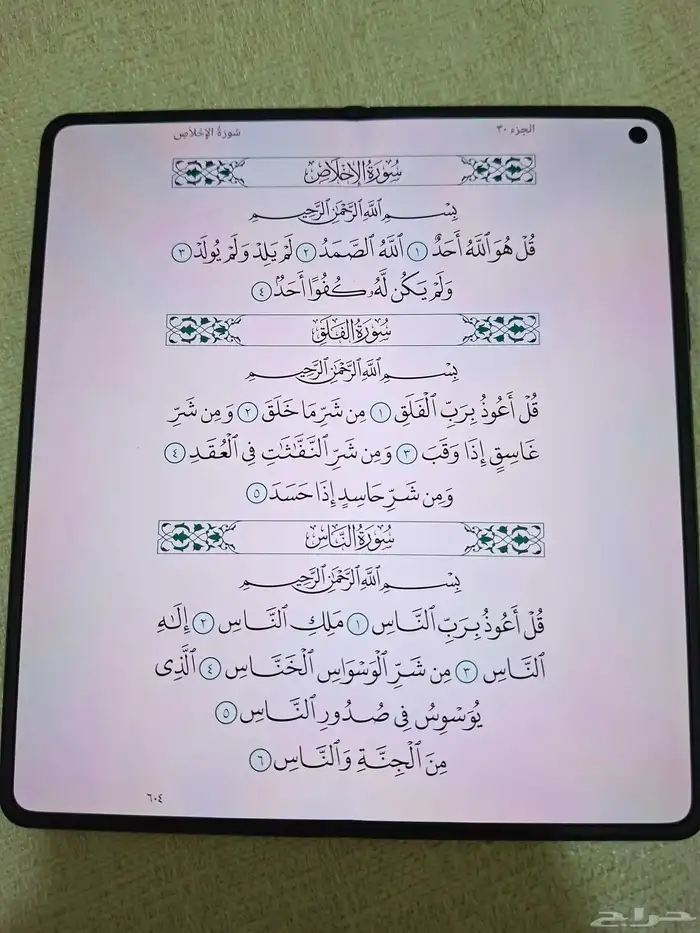 الجزء ٣٠
سُورَةُ الإِخْلَاصِ
سُورَةُ الإِخْلَاصِ
بِسْمِ ٱللَّهِ ٱلرَّحْمَٰنِ ٱلرَّحِيمِ
قُلْ هُوَ ٱللَّهُ أَحَدٌ ١ ٱللَّهُ ٱلصَّمَدُ ٢ لَمْ يَلِدْ وَلَمْ يُولَدْ ٣
وَلَمْ يَكُن لَّهُۥ كُفُوًا أَحَدٌۢ ٤
سُورَةُ الفَلَقِ
بِسْمِ ٱللَّهِ ٱلرَّحْمَٰنِ ٱلرَّحِيمِ
قُلْ أَعُوذُ بِرَبِّ ٱلْفَلَقِ ١ مِن شَرِّ مَا خَلَقَ ٢ وَمِن شَرِّ
غَاسِقٍ إِذَا وَقَبَ ٣ وَمِن شَرِّ ٱلنَّفَّٰثَٰتِ فِى ٱلْعُقَدِ ٤
وَمِن شَرِّ حَاسِدٍ إِذَا حَسَدَ ٥
سُورَةُ النَّاسِ
بِسْمِ ٱللَّهِ ٱلرَّحْمَٰنِ ٱلرَّحِيمِ
قُلْ أَعُوذُ بِرَبِّ ٱلنَّاسِ ١ مَلِكِ ٱلنَّاسِ ٢ إِلَٰهِ
ٱلنَّاسِ ٣ مِن شَرِّ ٱلْوَسْوَاسِ ٱلْخَنَّاسِ ٤ ٱلَّذِى
يُوَسْوِسُ فِى صُدُورِ ٱلنَّاسِ ٥
مِنَ ٱلْجِنَّةِ وَٱلنَّاسِ ٦
٦٠٤
حراج